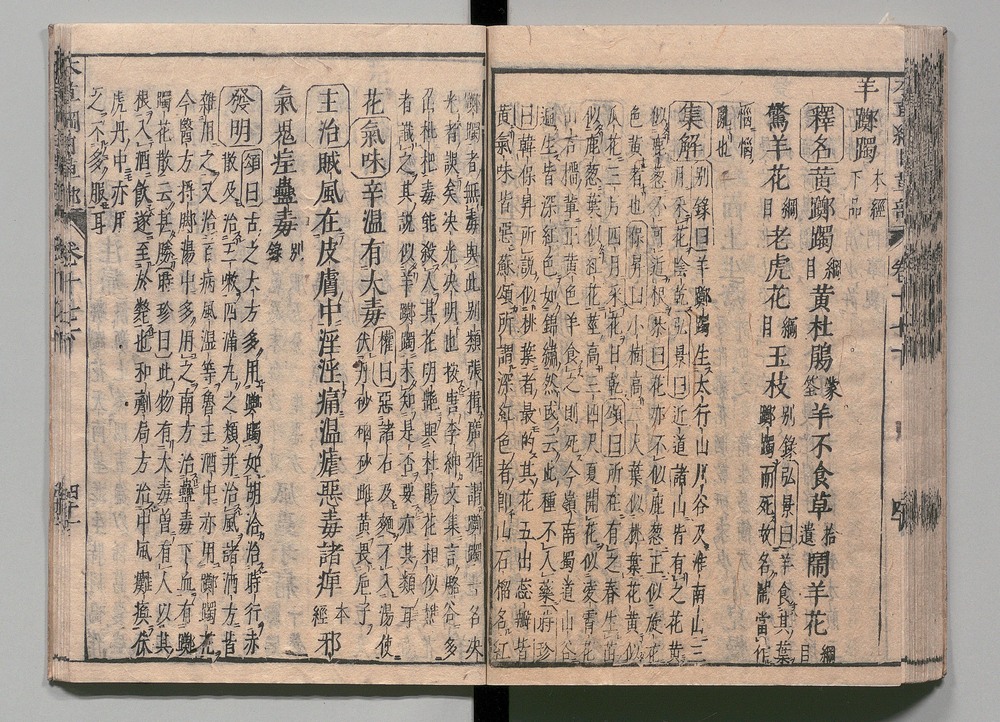 羊躑躅 本經下品
釋名 黃躑躅 綱目 黃杜鵑 蒙筌 羊不食草 拾遺 鬧羊花 綱目
驚羊花 綱目 老虎花 綱目 玉枝 別錄 弘景曰羊食其葉躑躅而死故名鬧當作
惱惱亂也
集解 別錄曰羊躑躅生太行山川谷及淮南山三
月采花陰乾弘景曰近道諸山皆有之花黃
似鹿葱不可近眼恭曰花亦不似鹿葱正似旋花
色黃者也保昇曰小樹高二尺葉似桃葉花黃似
瓜花三月四月采花日乾頌曰所在有之春生苗
似鹿葱葉似紅花莖高三四尺夏開花似凌霄花
山石榴輩正黃色羊食之則死今嶺南蜀道山谷
遍生皆深紅色如錦繡然或云此種不入藥時珍
曰韓保昇所說似桃葉者最的其花五出蕊瓣皆
黃氣味皆惡蘇頌所謂深紅色者即山石榴名紅
躑躅者無毒與此別類張揖廣雅謂躑躅一名決
光者誤矣決光決明也按唐李紳文集言駱谷多
山枇杷毒能殺人其花明艷與杜鵑花相似樵
者識之其說似羊躑躅未知是否要亦其類耳
花 氣味 辛溫有大毒 權曰惡諸石及麪不入湯使伏丹砂硇砂雌黃畏巵子
主治 賊風在皮膚中淫淫痛溫瘧惡毒諸痺 本經 邪
氣鬼疰蠱毒 別錄
發明 頌曰古之大方多用躑躅如胡洽治時行赤
散及治五嗽四滿丸之類并治風諸酒方皆
雜用之又治百病風濕等魯王酒中亦用躑躅花
今醫方捋腳湯中多用之南方治蠱毒下血有躑
躅花散云甚勝時珍曰此物有大毒曾有人以其
根入酒飲遂至於斃也和劑局方治中風癱瘓伏
虎丹中亦用
之不多服耳